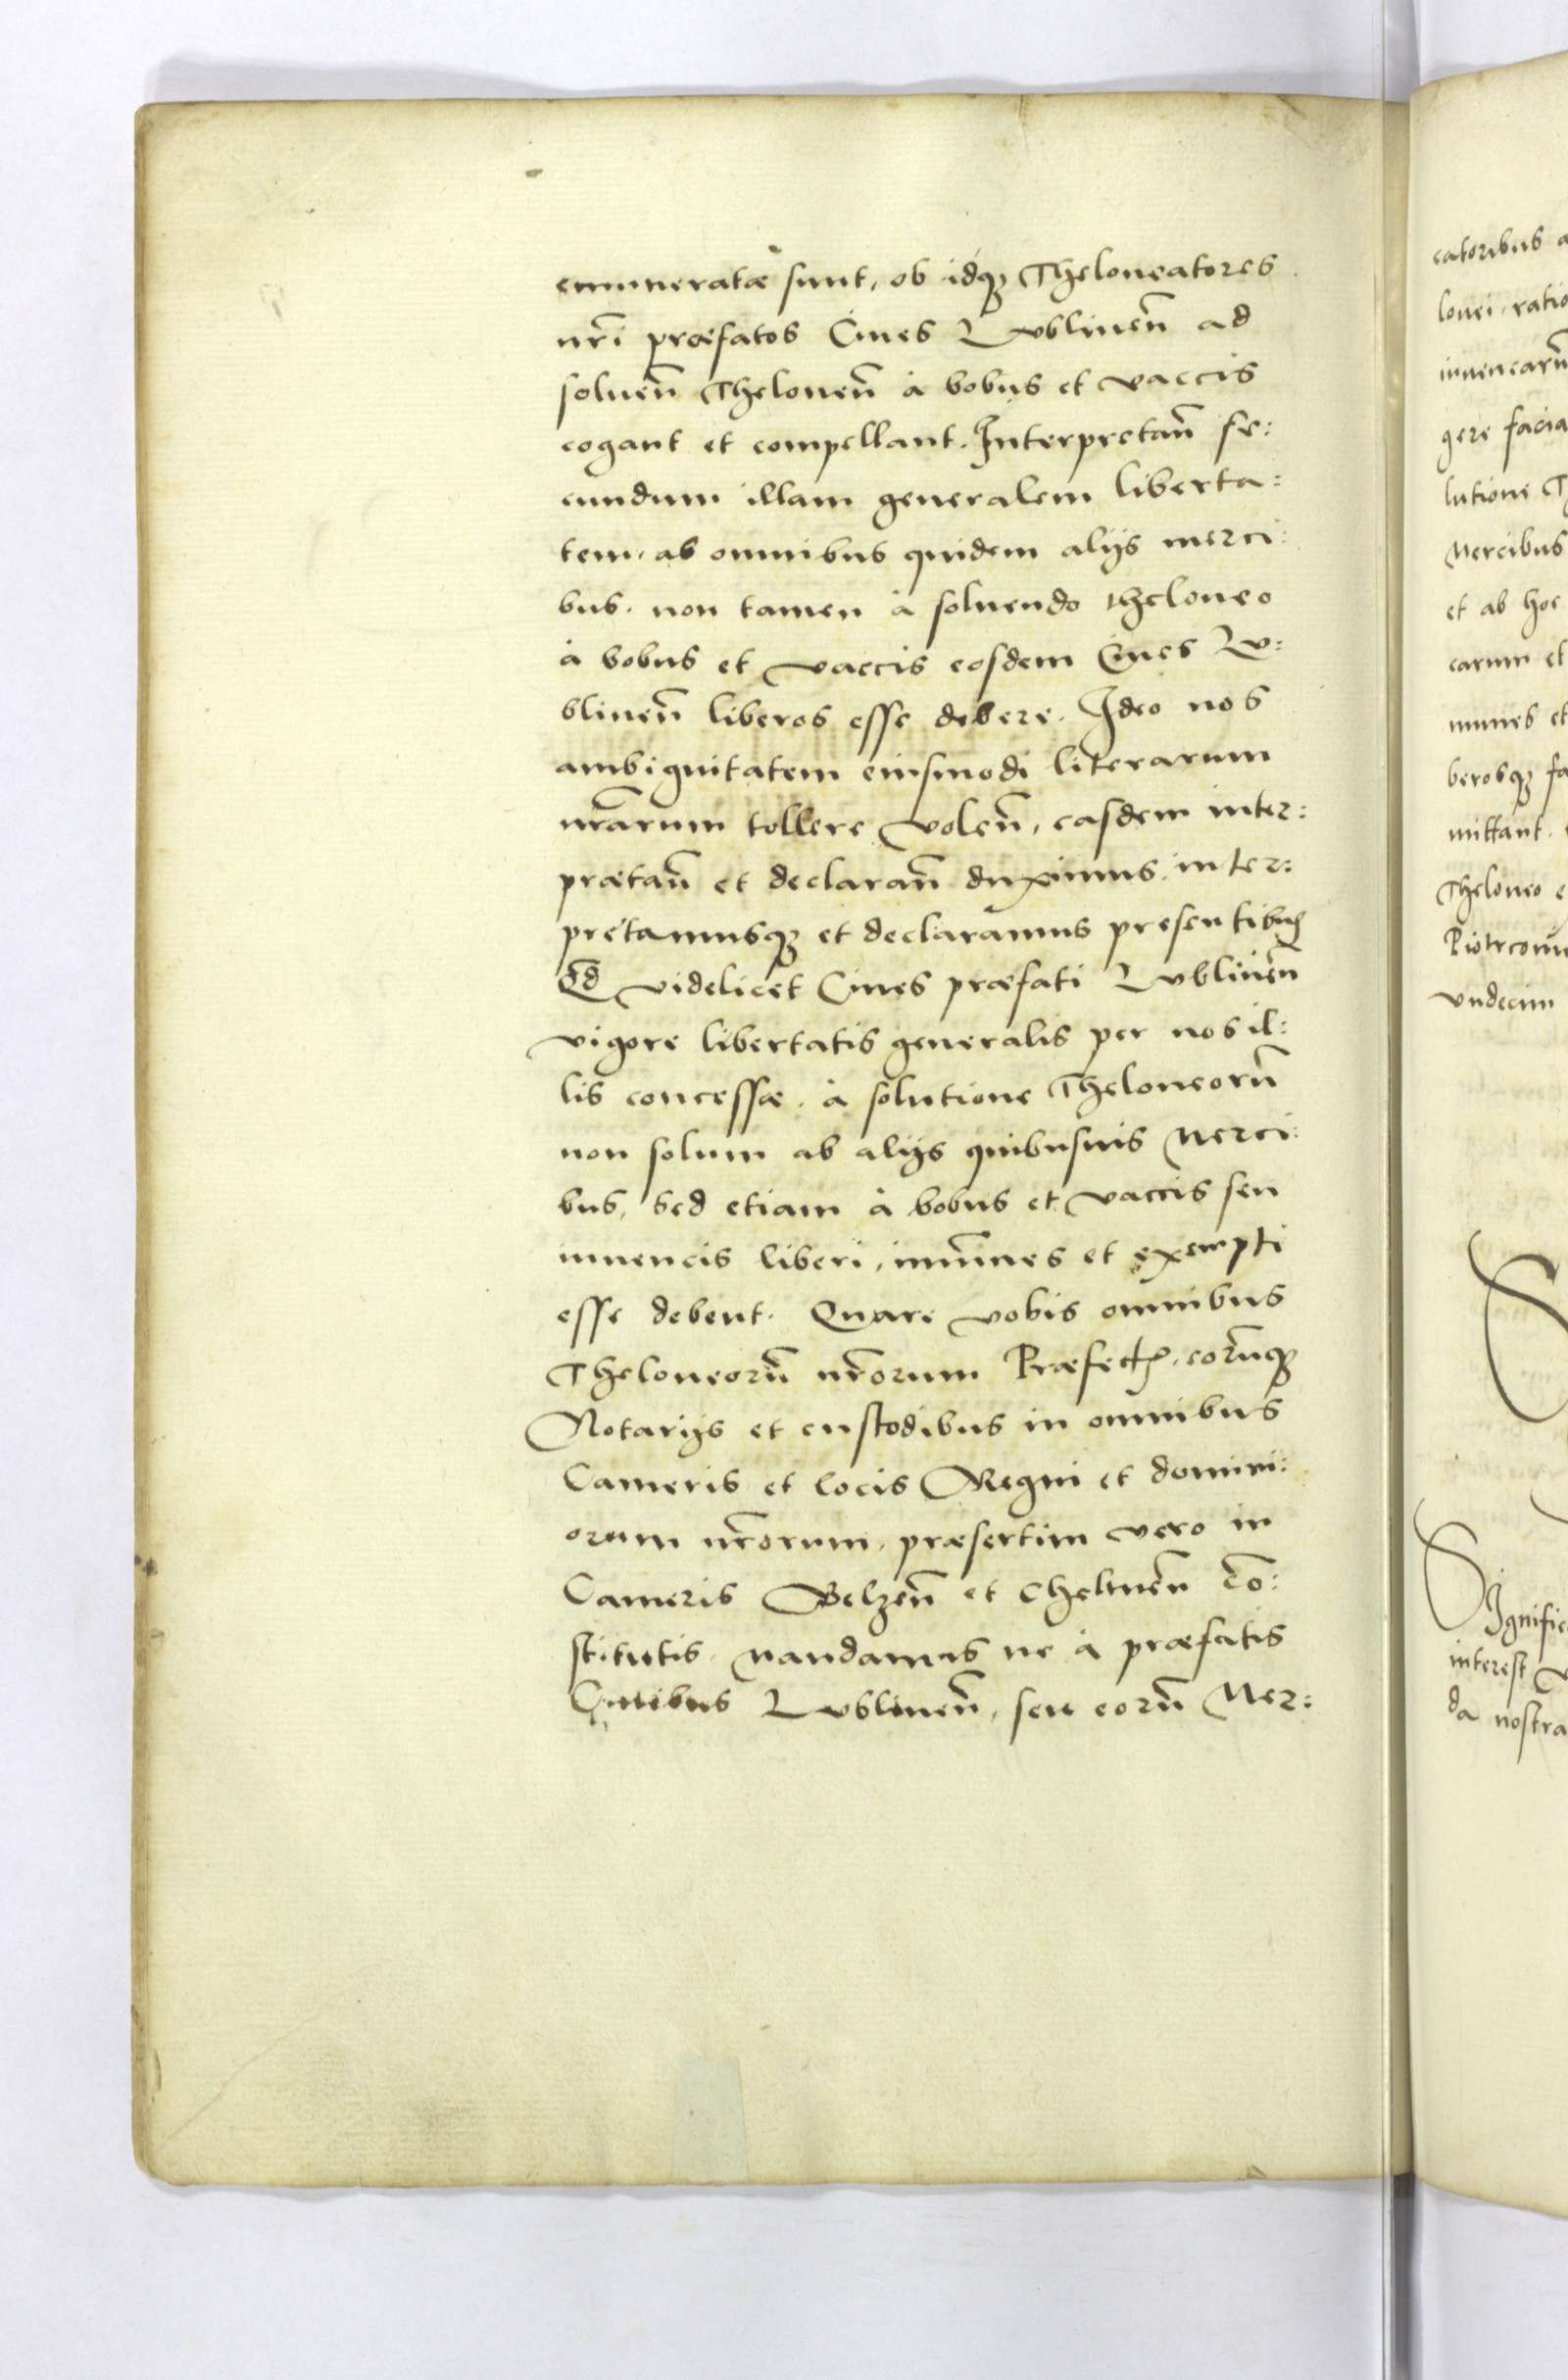 enumeratæ sunt, ob idq̃ Theloneatores
nr̃i præfatos Ciues Lublineñ ad
solueñ Theloneũ à bobus et vaccis
cogant et compellant. Interpretañ se:
cundum illam generalem liberta:
tem, ab omnibus quidem alijs merci:
bus. non tamen à soluendo theloneo
à bobus et vaccis eosdem Ciues Lu:
blineñ liberos esse debere. Ideo nos
ambiguitatem eiusmodi literarum
nr̃arum tollere voleñ, easdem inter:
prætañ et declarañ duximus, inter:
pretamusq̃ et declaramus presentibus
Qd̃ videlicet Ciues præfati Lublineñ
vigore libertatis generalis per nos il:
lis concessæ. à solutione Theloneorũ
non solum ab alijs quibusuis Merci:
bus, sed etiam à bobus et vaccis seu
iuuencis liberi, imũnes et exempti
esse debent. Quare vobis omnibus
Theloneorũ nr̃orum Præfect., eorũq̃
Notarijs et custodibus in omnibus
Cameris et locis Regni et domini:
orum nr̃orum, præsertim vero in
Cameris Belzeñ et Chelmeñ cõ:
stitutis. Mandamus ne à præfatis
Ciuibus Lublineñ, seu eorũ Mer:
catoribus
lonei, ratio
iuuencarũ
gere facia
lutione
Mercibus
et ab hoc
carum et
munes et
berosq̃ fa
mittant.
Theloneo
Piotrcouie
vndecim
Signific
interest
da nostra